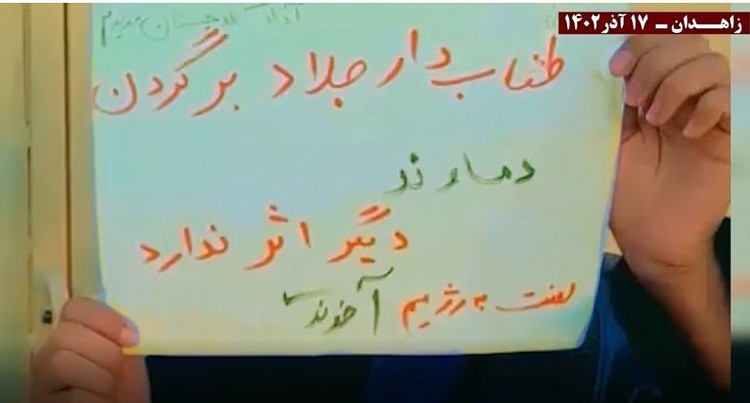 زاهدان ـ ۱۷ آذر ۱۴۰۲
طناب دار جلاد بر گردن
دماوند
دیگر اثر ندارد
لعنت به رژیم آخوندی